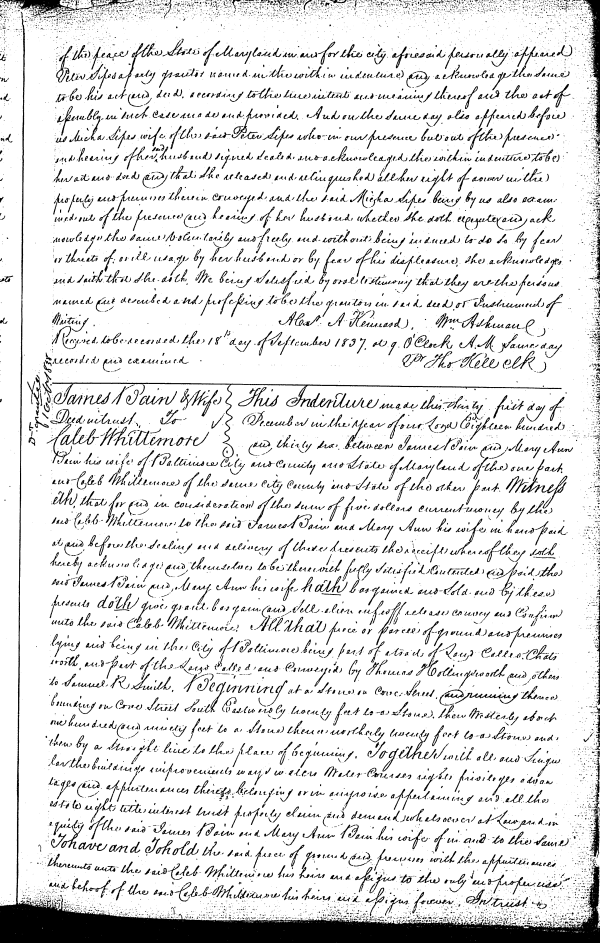 of the peace of the State of Maryland in and for the city aforesaid personally appeared
Peter Sipes a party grantor named in the within indenture and acknowledge the same
to be his act and deed, according to the true intent and meaning thereof and the act of
assembly in such case made and provided. And on the same day also appeared before
us Micha Sipes wife of the said Peter Sipes who in our presence but out of the presence
and hearing of her said husband signed sealed and acknowledged the within indenture to be
her act and deed and that she released and relinquished all her right of dower in the
property and premises therein conveyed and the said Micha Sipes being by us also exam
ined out of the presence and hearing of her husband whether she doth execute and ack
nowledge the same Voluntarily and freely and without being induced to do so by fear
or threats of, or ill usage by her husband or by fear of his displeasure, she acknowledges
and saith that she doth. We being Satisfied by oral testimony that they are the persons
named and described as and professing to be the grantors in said deed or Instrument of
Writing. A Kennard, Wm Ashman
Received to be recorded the 18th day of September 1837, at 9. O'Clock A.M Same day
recorded and examined. Pr Tho Kell clk
James Bain & Wife
Deed in trust To
Caleb Whittemore
This Indenture made this thirty first day of
December in the Year of our Lord Eighteen hundred
and thirty six, between James Bain and Mary Ann
Bain his wife of Baltimore City and County and State of Maryland of the one part
and Caleb Whittemore of the same city County and State of the other part. Witness
eth, that for and in consideration of the sum of five dollars current money by the
said Caleb Whittemore to the said James Bain and Mary Ann his wife in hand paid
at and before the sealing and delivery of these presents the receipt whereof they doth
hereby acknowledge and themselves to be therewith fully Satisfied Contented and paid, the
said James Bain and Mary Ann his wife hath bargained and Sold and by these
presents doth give grant bargain and Sell alien enfeoff release convey and Confirm
unto the said Caleb Whittemore. All that piece or parcel of ground and premises
lying and being in the City of Baltimore being part of a tract of Land Called Chats
worth, and part of the Land Called and Conveyed by Thomas Hollingsworth and others
to Samuel R Smith. Beginning at a Stone on Cove Street, and running thence
bounding on Cove Street South Eastwardly twenty feet to a Stone, then Westerly about
one hundred and ninety feet to a Stone thence northerly twenty feet to a Stone and
then by a straight line to the place of beginning. Together with all and Singu
lar the buildings improvements ways waters Water Courses rights privileges advan
tages and appurtenances thereto belonging or in anywise appertaining and all the
estate right title interest trust property claim and demand whatsoever at Law and in
equity of the said James Bain and Mary Ann Bain his wife of in and to the same
To have and To hold the said piece of ground and premises with the appurtenances
thereunto unto the said Caleb Whittemore his heirs and assigns to the only and proper use
and behoof of the said Caleb Whittemore his heirs and assigns forever. In trust